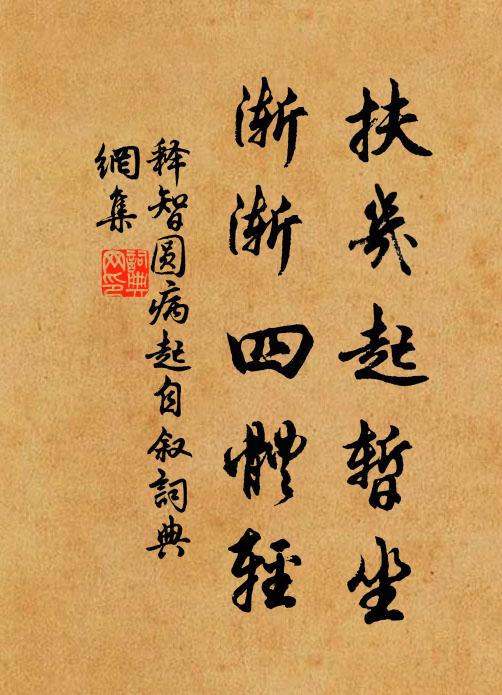 扶幾起暫坐
漸漸四體輕
释智圆病起自叙詞典
網集
詞典
网印